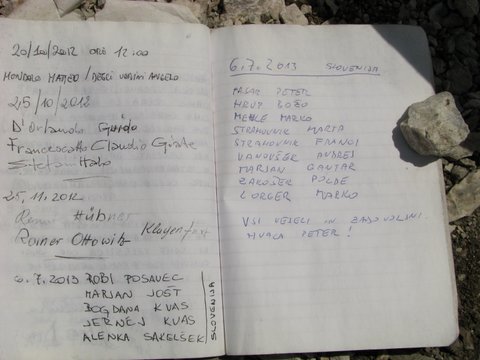 20/10/2012 ORE 12:00
MONDOLO MATTEO / DEGLI UOMINI ANGELO
25/10/2012
D'Orlando Guido
Francescatto Claudio
Stefani Italo
25.11.2012
Hübner
Rainer Ottowitz Klagenfurt
6.7.2013 ROBI POSAVEC
MARJAN JOŠT
BOGDANA KVAS
JERNEJ KVAS
ALENKA SAKELŠEK
SLOVENIJA
6.7.2013 SLOVENIJA
PETER
HRUP BOŽO
MEHLE MARKO
STRAHOVNIK MARTA
STRAHOVNIK FRANCI
VANOVŠEK ANDREJ
MARJAN GANTAR
ZAKOŠEK POLDE
LORGER MARKO
VSI VESELI IN ZADOVOLJNI.
HVALA PETER!